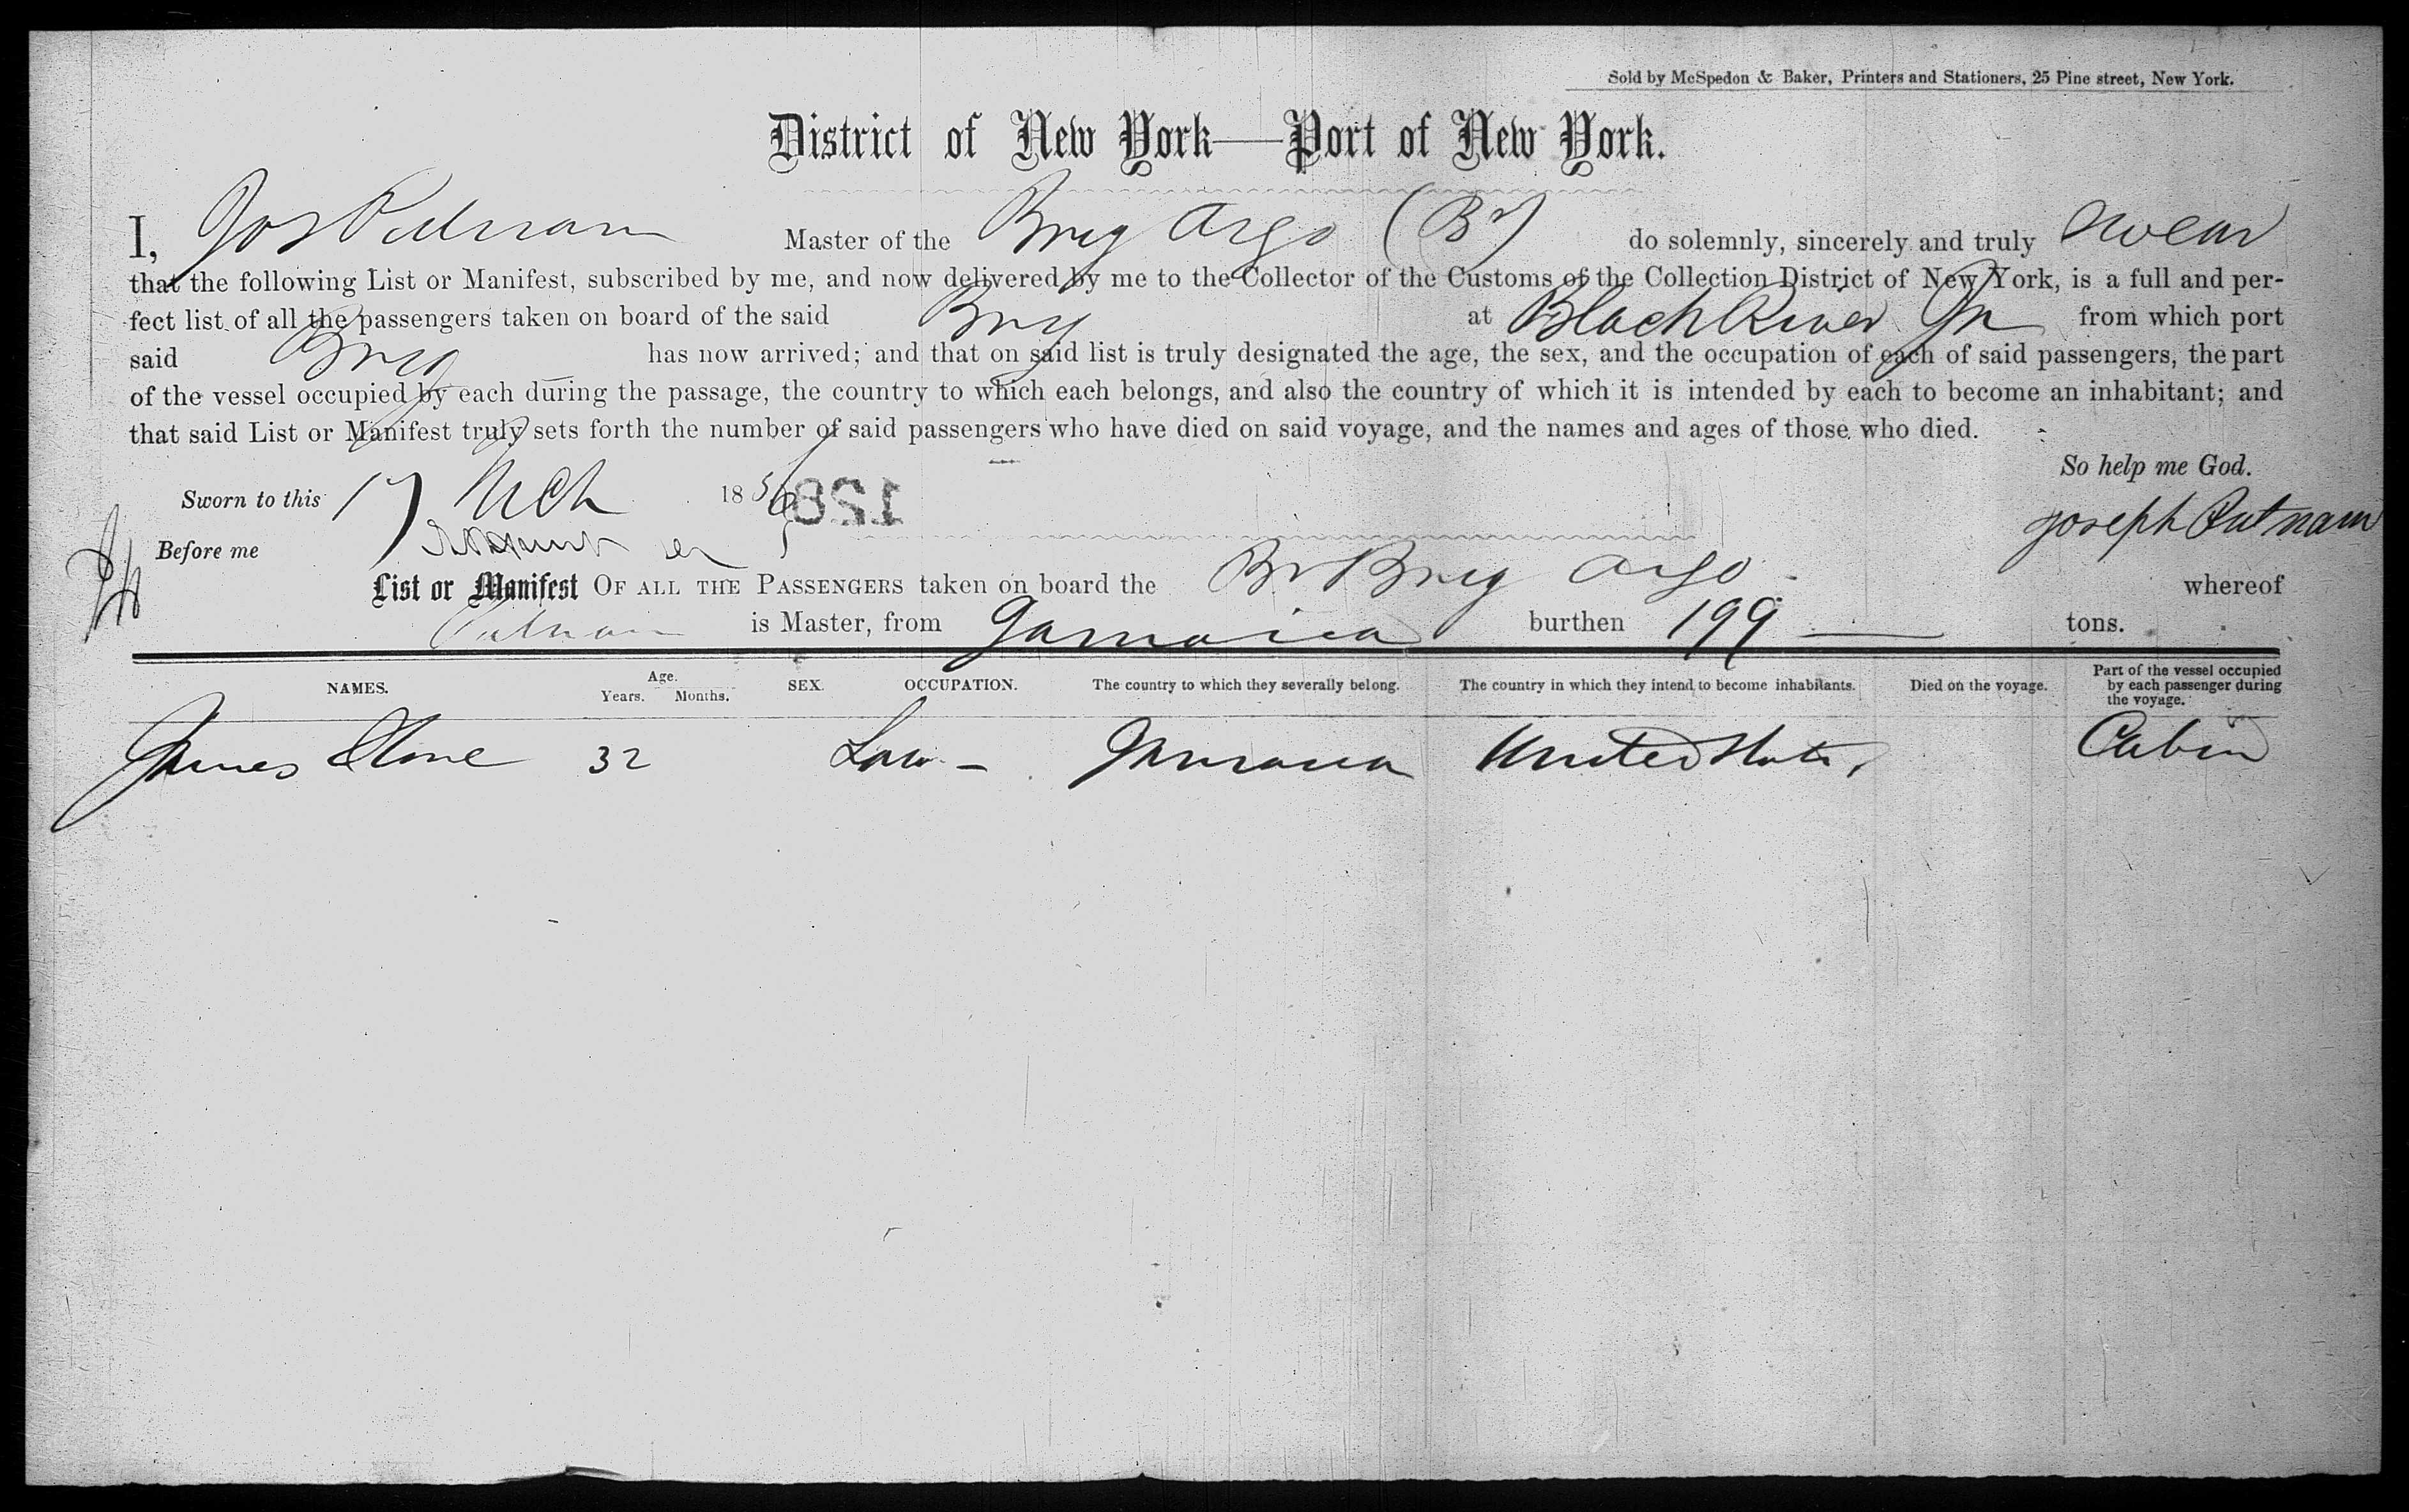 Sold by McSpedon & Baker, Printers and Stationers, 25 Pine street, New York.
District of New York—Port of New York.
I, Jos Putnam Master of the Brig Argo (Br) do solemnly, sincerely and truly swear
that the following List or Manifest, subscribed by me, and now delivered by me to the Collector of the Customs of the Collection District of New York, is a full and per-
fect list of all the passengers taken on board of the said Brig at Black River Ja from which port
said Brig has now arrived; and that on said list is truly designated the age, the sex, and the occupation of each of said passengers, the part
of the vessel occupied by each during the passage, the country to which each belongs, and also the country of which it is intended by each to become an inhabitant; and
that said List or Manifest truly sets forth the number of said passengers who have died on said voyage, and the names and ages of those who died.
So help me God.
Sworn to this 17 Mch 1856 128
Joseph Putnam
Before me
List or Manifest OF ALL THE PASSENGERS taken on board the Br Brig Argo whereof
Putnam is Master, from Jamaica burthen 199 tons.
NAMES. Age. Years. Months. SEX. OCCUPATION. The country to which they severally belong. The country in which they intend to become inhabitants. Died on the voyage. Part of the vessel occupied by each passenger during the voyage.
James Stone 32 Law - Jamaica United States Cabin